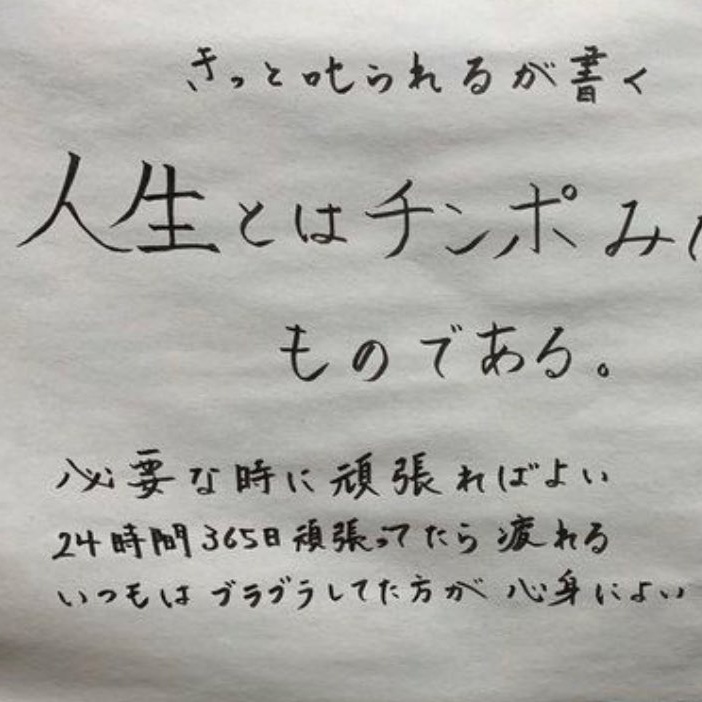 きっと叱られるが書く
人生とはチンポみ
ものである。
必要な時に頑張ればよい
24時間365日頑張ってたら疲れる
いつもはブラブラしてた方が心身によい